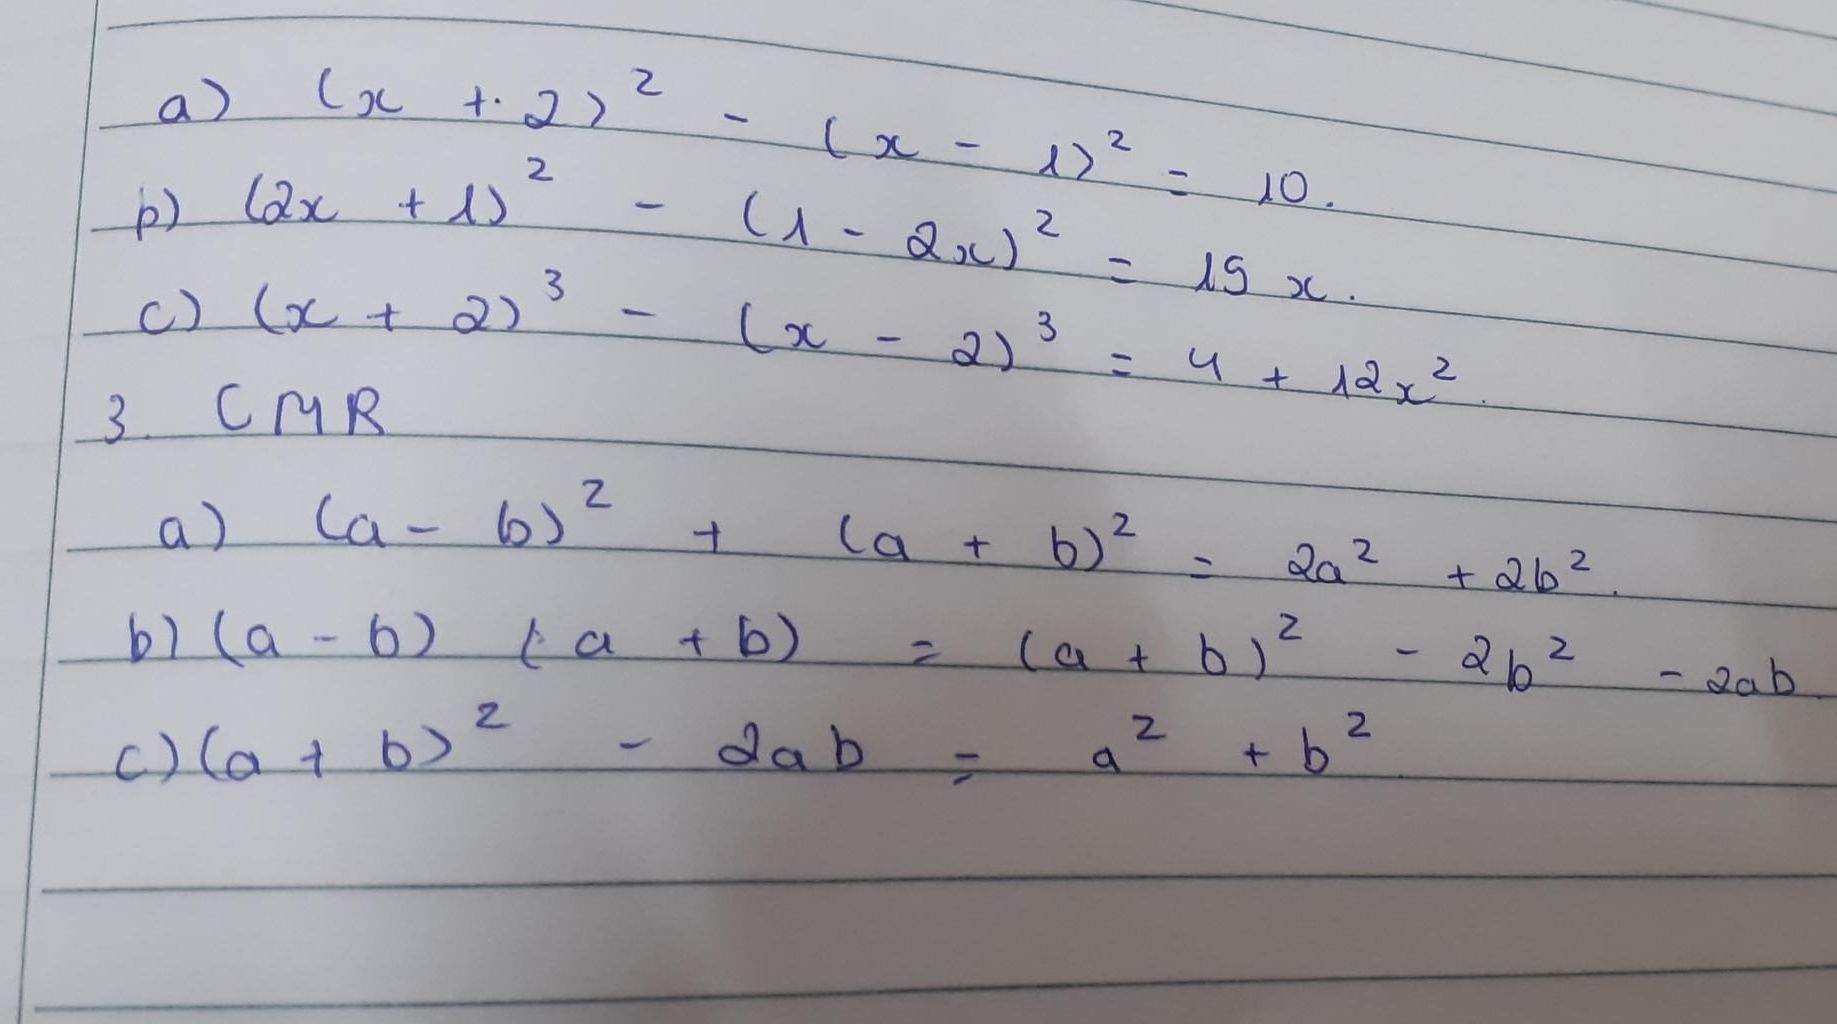 a) (x + 2)² - (x - 1)² = 10.
b) (2x + 1)² - (1 - 2x)² = 15 x.
c) (x + 2)³ - (x - 2)³ = 4 + 12x².
3. CMR
a) (a - b)² + (a + b)² = 2a² + 2b².
b) (a - b) (a + b) = (a + b)² - 2b² - 2ab.
c) (a + b)² - 2ab = a² + b².